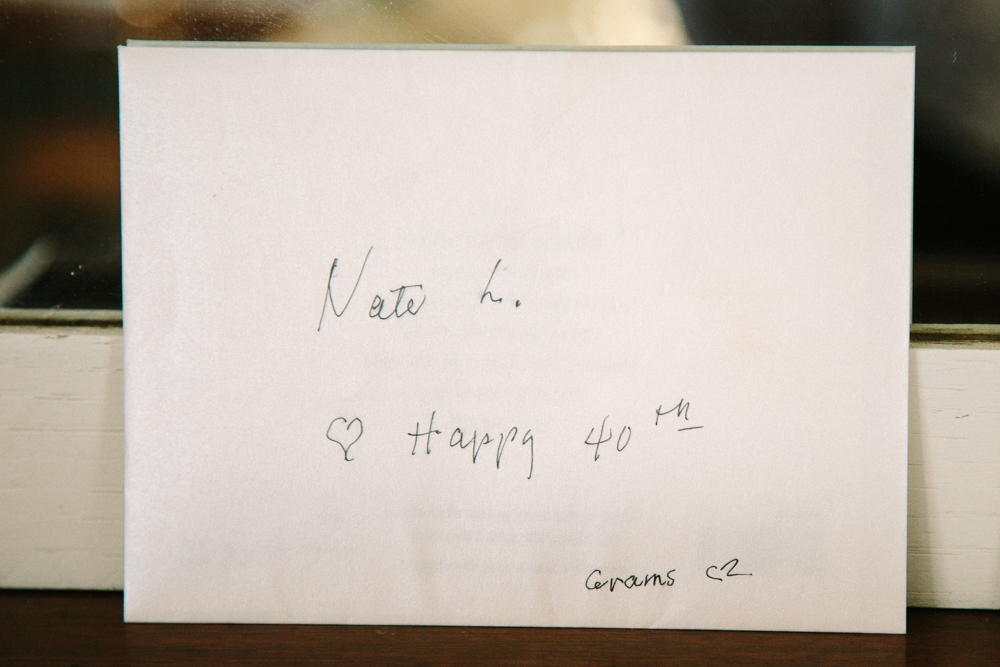 Nate L.
♡ Happy 40th
Grams ♡